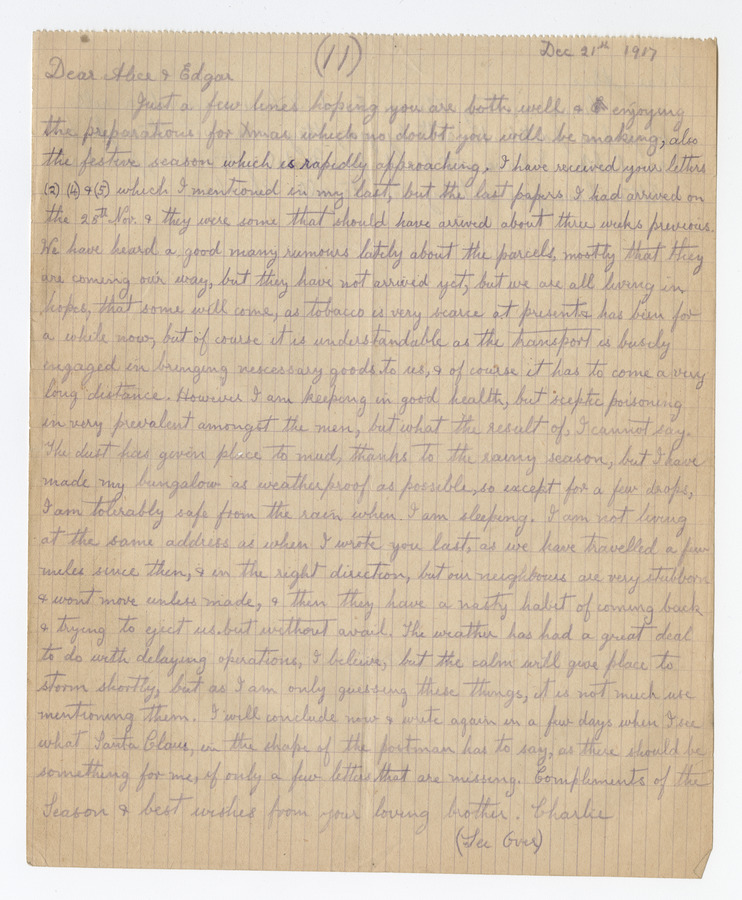 (11)
Dec 21st 1917
Dear Alice & Edgar
Just a few lines hoping you are both well & enjoying
the preparations for Xmas which no doubt you will be making, also
the festive season which is rapidly approaching. I have received your letters
(2) (4) & (5) which I mentioned in my last, but the last papers I had arrived on
the 25th Nov. & they were some that should have arrived about three weeks previous.
We have heard a good many rumours lately about the parcels, mostly that they
are coming our way, but they have not arrived yet, but we are all living in
hopes, that some will come, as tobacco is very scarce at present & has been for
a while now, but of course it is understandable as the transport is busily
engaged in bringing nescessary goods to us, & of course it has to come a very
long distance. However I am keeping in good health, but sceptic poisoning
in very prevalent amongst the men, but what the result of, I cannot say.
The dust has given place to mud, thanks to the rainy season, but I have
made my bungalow as weatherproof as possible, so except for a few drops,
I am tolerably safe from the rain when I am sleeping. I am not living
at the same address as when I wrote you last, as we have travelled a few
miles since then, & in the right direction, but our neighbours are very stubborn
& wont move unless made, & then they have a nasty habit of coming back
& trying to eject us. but without avail. The weather has had a great deal
to do with delaying operations, I believe, but the calm will give place to
storm shortly, but as I am only guessing these things, it is not much use
mentioning them. I will conclude now & write again in a few days when I see
what Santa Claus, in the shape of the postman has to say, as there should be
something for me, if only a few letters that are missing. Compliments of the
Season & best wishes from your loving brother. Charlie
(See Over)